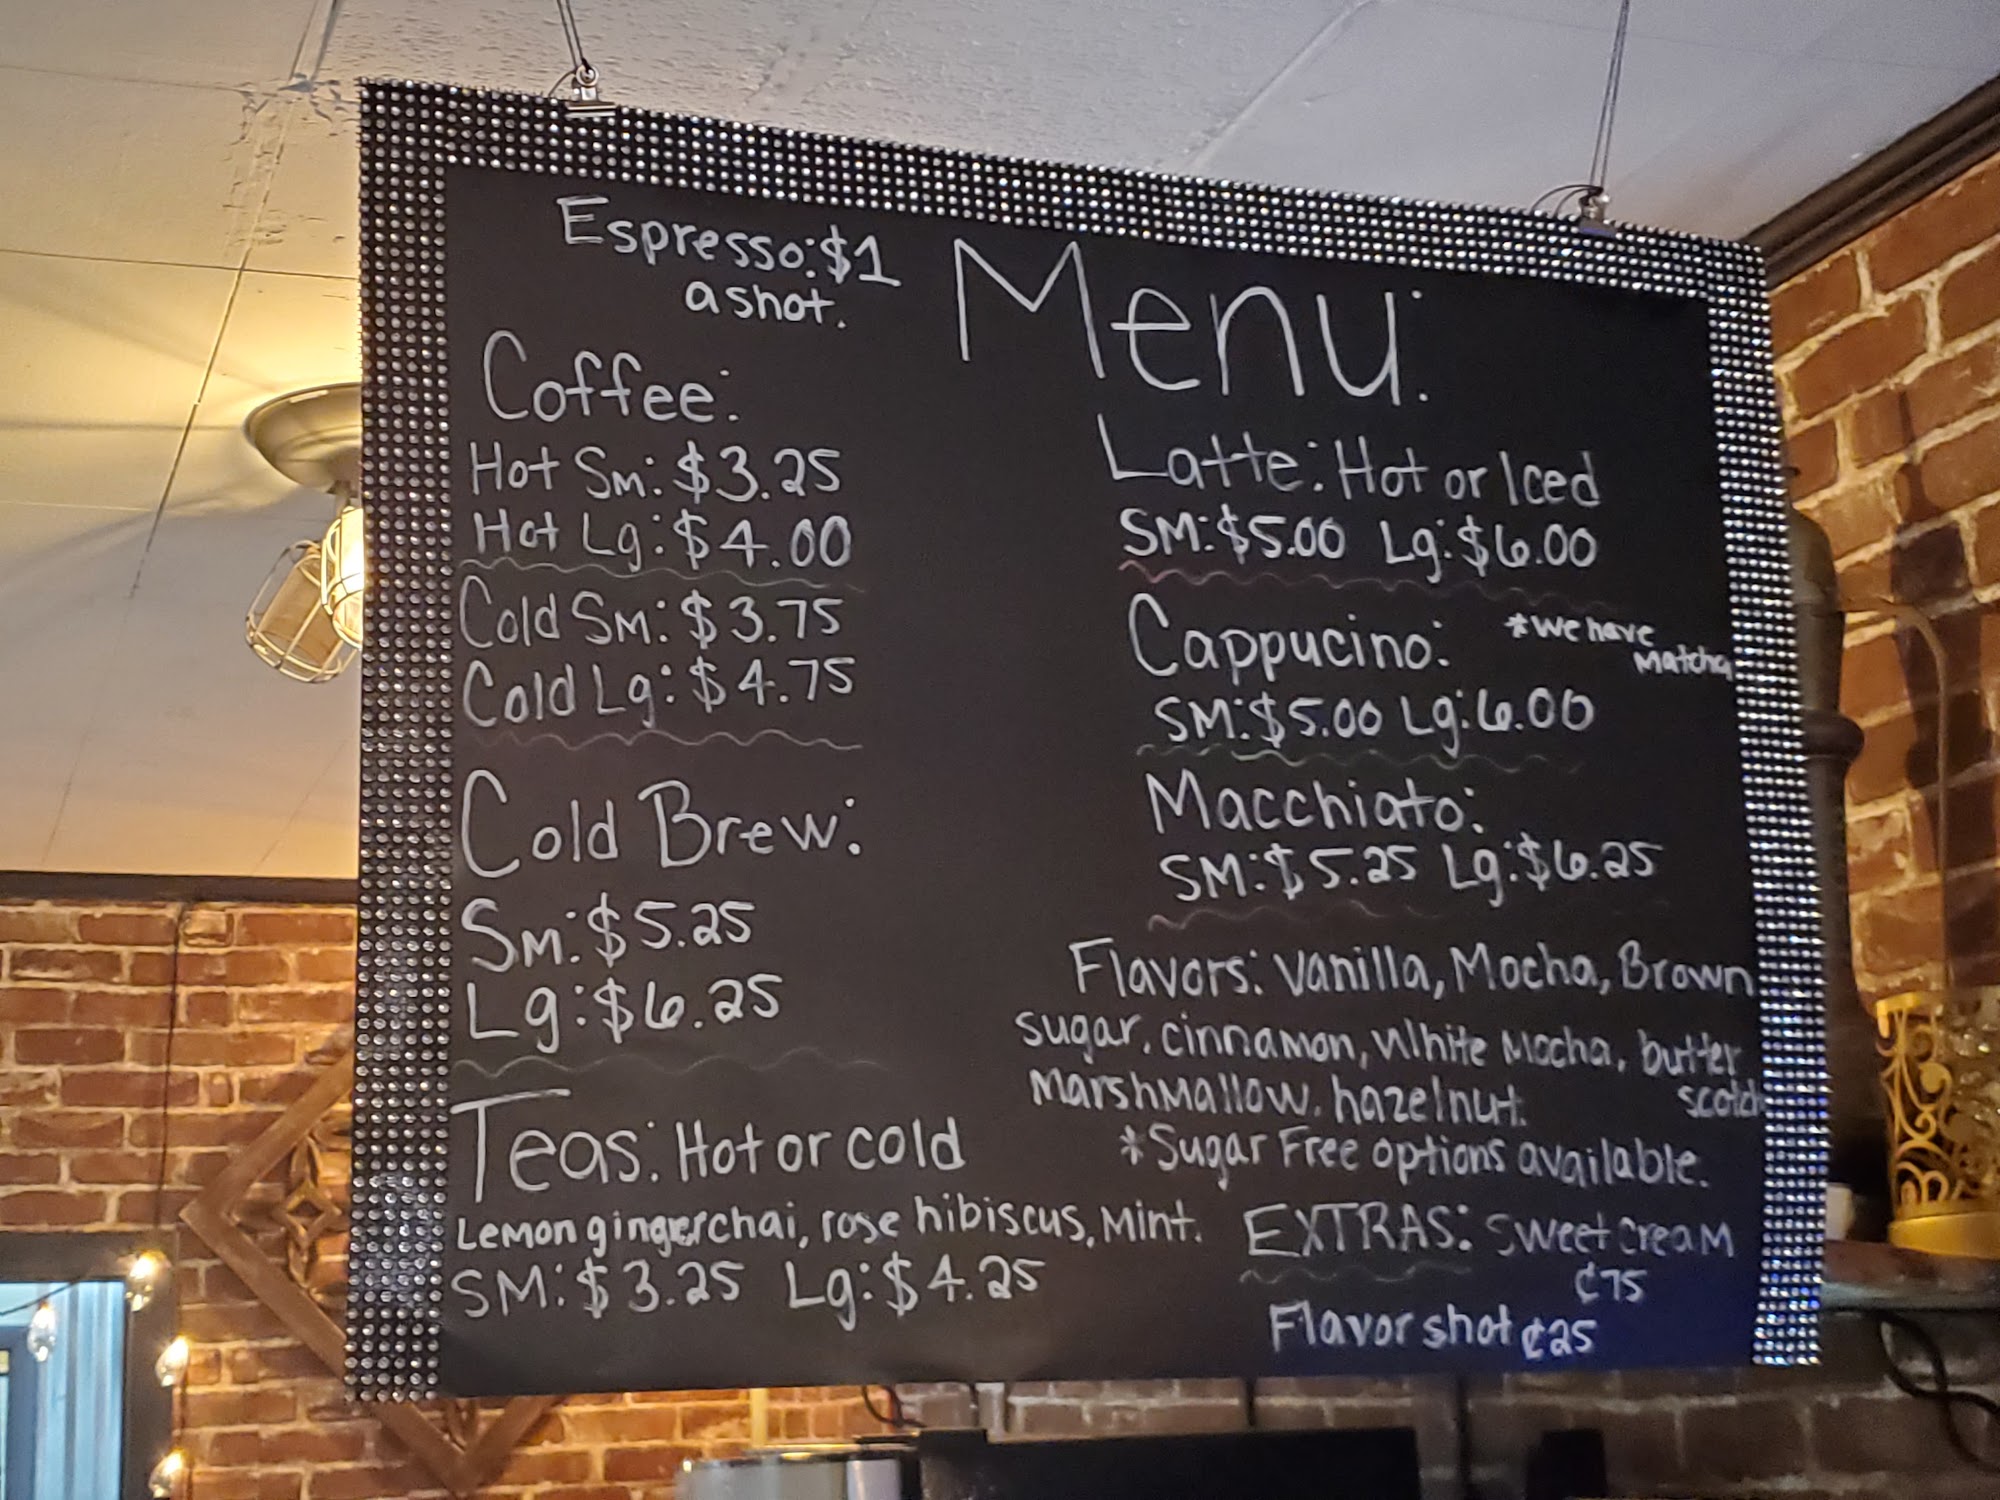 Menu:
Espresso: $1
a shot.
Coffee:
Hot Sm: $3.25
Hot Lg: $4.00
Cold SM: $3.75
Cold Lg: $4.75
Cold Brew:
SM: $5.25
Lg: $6.25
Teas: Hot or cold
Lemon ginger chai, rose hibiscus, Mint.
SM: $3.25 Lg: $4.25
Latte: Hot or Iced
SM: $5.00 Lg: $6.00
Cappucino:
*We have
Matcha
SM: $5.00 Lg: 6.00
Macchiato:
SM: $5.25 Lg: $6.25
Flavors: Vanilla, Mocha, Brown
sugar, cinnamon, White Mocha, butter
scotch
Marshmallow, hazelnut.
*Sugar Free options available.
EXTRAS: Sweet cream
¢75
Flavor shot ¢25